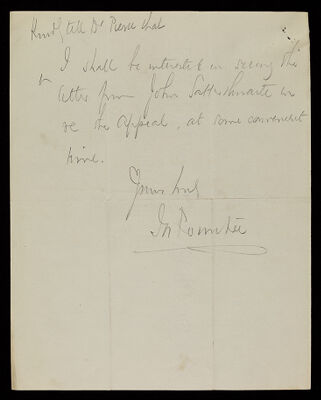 Kindly tell Dr Pierce that
I shall be interested in seeing the
letter from John Satterthwaite in
re the appeal, at some convenient
time.
Yours truly
Rowntree